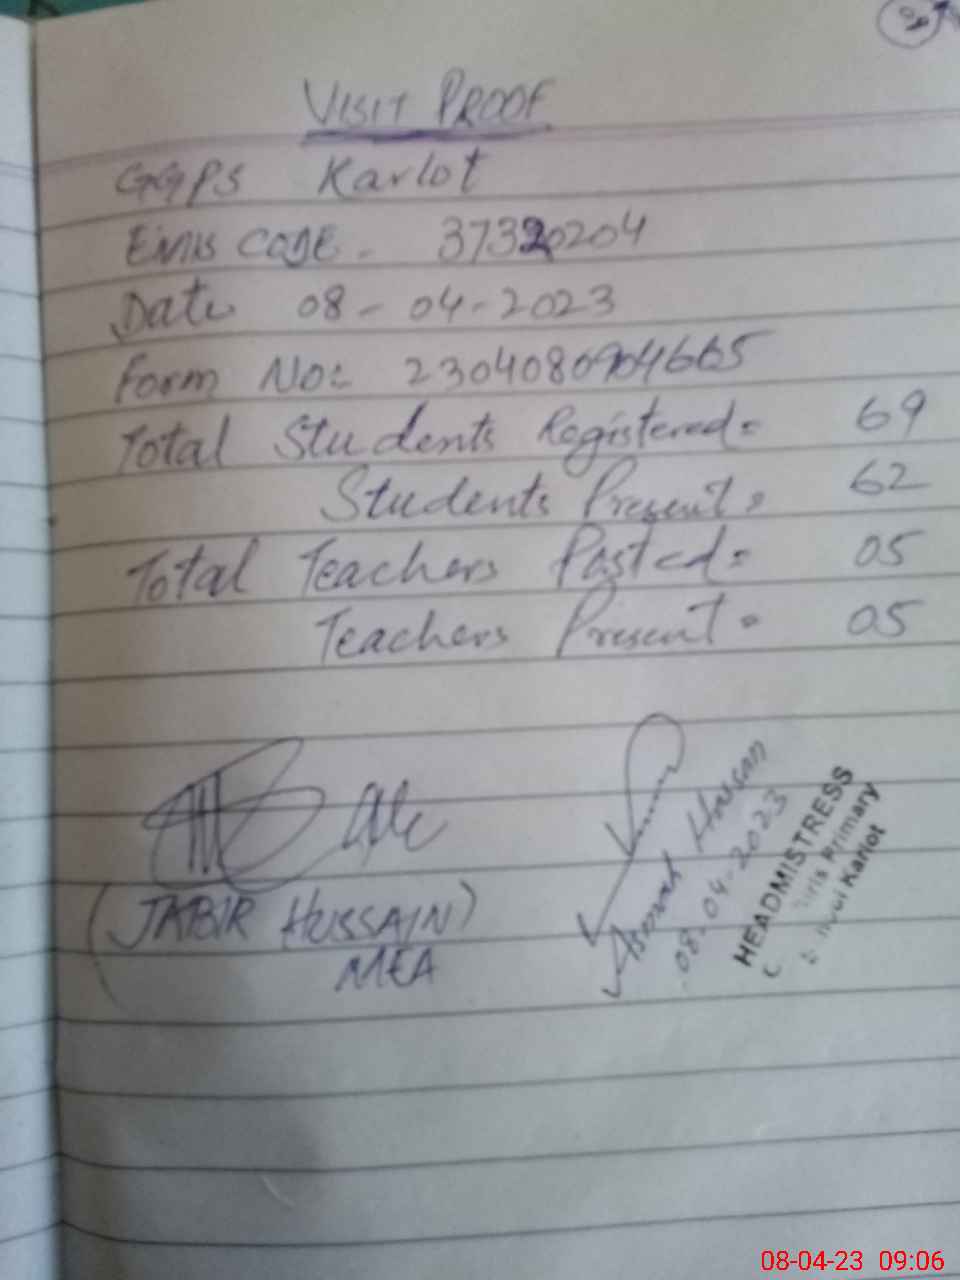 VISIT PROOF
GGPS Karlot
EMIS CODE - 37320204
Date 08-04-2023
Form No: 2304080904665
Total Students Registered= 69
Students Present= 62
Total Teachers Posted= 05
Teachers Present= 05
(JABIR HUSSAIN)
MEA
Hassan
08-04-2023
HEADMISTRESS
Girls Primary
Karlot
08-04-23 09:06